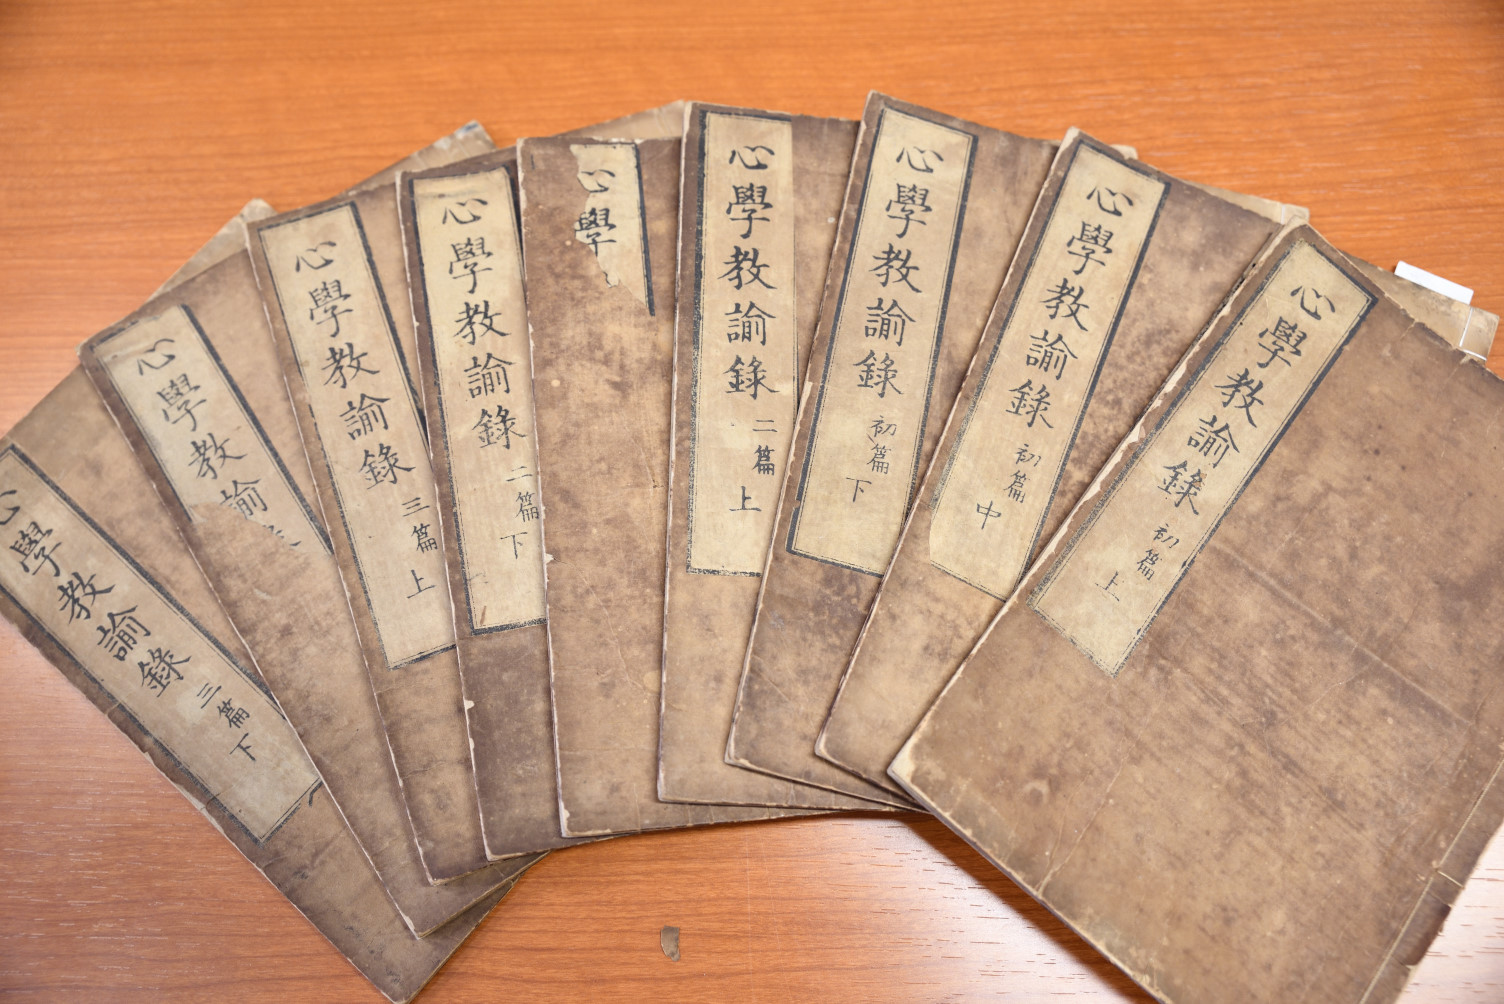 心學教諭錄 初篇 上
心學教諭錄 初篇 中
心學教諭錄 初篇 下
心學教諭錄 二篇 上
心學
心學教諭錄 二篇 下
心學教諭錄 三篇 上
心學教諭
心學教諭錄 三篇 下